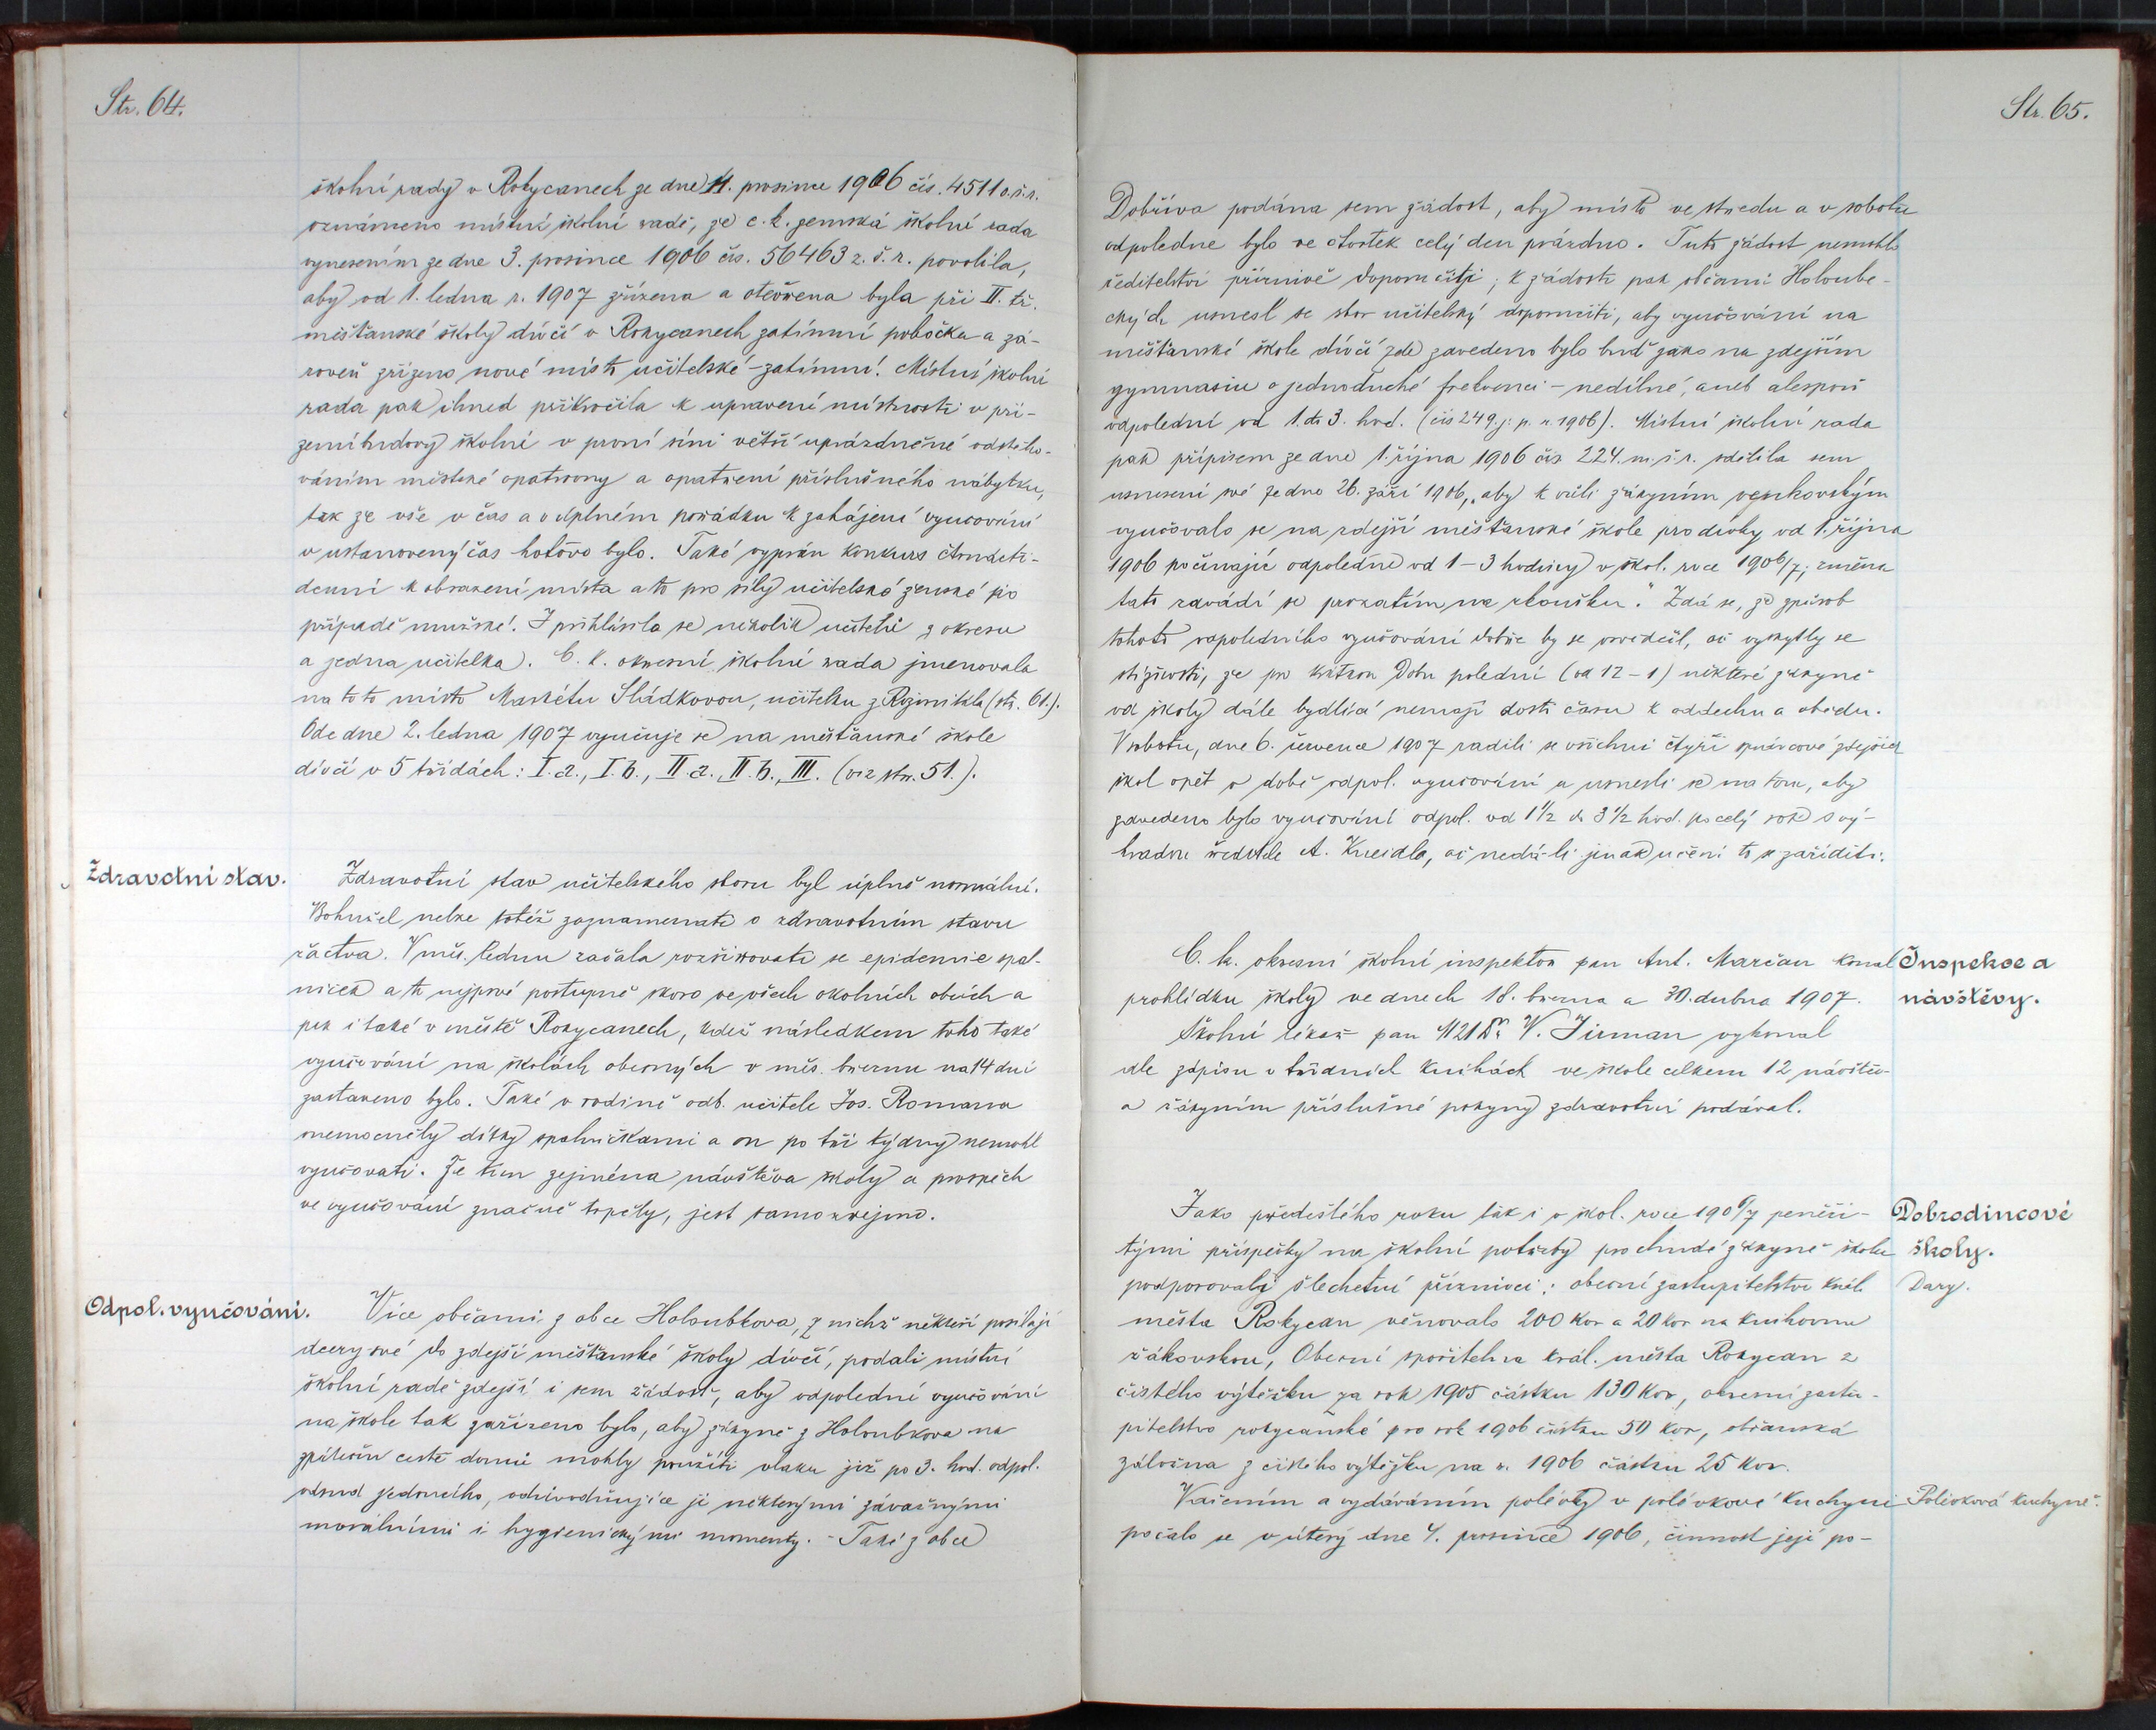 Str. 64.
školní rady v Rokycanech ze dne 11. prosince 1906 čís. 4511 o.š.r.
oznámeno místní školní radě, že c. k. zemská školní rada
vynesením ze dne 3. prosince 1906 čís. 56463 z. š. r. povolila,
aby od 1. ledna r. 1907 zřízena a otevřena byla při II. tř.
měšťanské školy dívčí v Rokycanech zatímní pobočka a zá-
roveň zřízeno nové místo učitelské – zatímní. Místní školní
rada pak ihned přikročila k upravení místnosti v pří-
zemí budovy školní v první síni větší uprázdněné odstěho-
váním městské opatrovny a opatření příslušného nábytku,
tak že vše v čas a v úplném pořádku k zahájení vyučování
v ustanovený čas hotovo bylo. Také vypsán konkurs čtrnácti-
denní k obsazení místa a to pro síly učitelské ženské po
případě mužské. I přihlásila se několik učitelů z okresu
a jedna učitelka. C. k. okresní školní rada jmenovala
na toto místo Markétu Sládkovou, učitelku z Rožmitála (str. 61.).
Ode dne 2. ledna 1907 vyučuje se na měšťanské škole
dívčí v 5 třídách: I. a., I. b., II. a., II. b., III. (viz str. 51.).
Zdravotní stav.
Zdravotní stav učitelského sboru byl úplně normální.
Bohužel nelze totéž zaznamenati o zdravotním stavu
žactva. V měs. lednu začala rozšiřovati se epidemie spal-
niček a to nejprvé postupně skoro ve všech okolních obcích a
pak i také v městě Rokycanech, kdež následkem toho také
vyučování na školách obecných v měs. březnu na 14 dní
zastaveno bylo. Také v rodině odb. učitele Jos. Romana
onemocněly dítky spalničkami a on po tři týdny nemohl
vyučovati. Že tím zejména návštěva školy a prospěch
ve vyučování značně trpěly, jest samozřejmo.
Odpol. vyučování.
Více občanů z obce Holoubkova, z nichž někteří posílají
dcery své do zdejší měšťanské školy dívčí, podali místní
školní radě zdejší i sem žádost, aby odpolední vyučování
na škole tak zařízeno bylo, aby žákyně z Holoubkova na
zpáteční cestě domů mohly použíti vlaku již po 3. hod. odpol.
odsud jedoucího, odůvodňujíce ji některými závažnými
morálními i hygienickými momenty. – Také z obce
Str. 65.
Dobříva podána sem žádost, aby místo ve středu a v sobotu
odpoledne bylo ve čtvrtek celý den prázdno. Tuto žádost nemohlo
ředitelství příznivě doporučiti; k žádosti pak občanů Holoube-
ckých usnesl se sbor učitelský doporučiti, aby vyučování na
měšťanské škole dívčí zde zavedeno bylo buď jako na zdejším
gymnasiu o jednoduché frekvenci – nedílné, aneb alespoň
odpolední od 1. do 3. hod. (čís 249. j. p. r. 1906). Místní školní rada
pak přípisem ze dne 1. října 1906 čís 224. m. š. r. sdělila sem
usnesení své ze dne 26. září 1906, „aby k vůli žákyním venkovským
vyučovalo se na zdejší měšťanské škole pro dívky od 1. října
1906 počínajíc odpoledne od 1–3 hodiny v škol. roce 1906/7; změna
tato zavádí se prozatím na zkoušku.“ Zdá se, že způsob
tohoto odpoledního vyučování dobře by se osvědčil, ač vyskytly se
stížnosti, že pro krátkou dobu polední (od 12–1) některé žákyně
od školy dále bydlící nemají dosti času k oddechu a obědu.
V sobotu, dne 6. července 1907 radili se všichni čtyři správcové zdejších
škol opět o době odpol. vyučování a usnesli se na tom, aby
zavedeno bylo vyučování odpol. od 1 1/2 do 3 1/2 hod. po celý rok s vý-
hradou ředitele A. Kneidla, ač nedá-li jinak učení to se zaříditi.
C. k. okresní školní inspektor pan Ant. Marčan konal
prohlídku školy ve dnech 18. března a 30. dubna 1907.
Inspekce a
návštěvy.
Školní lékař pan MUDr. V. Jirman vykonal
dle zápisu v třídních knihách ve škole celkem 12 návštěv
a žákyním příslušné pokyny zdravotní podával.
Jako předešlého roku tak i v škol. roce 1906/7 peněži-
tými příspěvky na školní potřeby pro chudé žákyně školu
podporovali šlechetní příznivci: obecní zastupitelstvo král.
města Rokycan věnovalo 200 kor a 20 kor na knihovnu
žákovskou, Obecní spořitelna král. města Rokycan z
čistého výtěžku za rok 1905 částku 130 Kor, okresní zastu-
pitelstvo rokycanské pro rok 1906 částku 50 Kor, občanská
záložna z čistého výtěžku na r. 1906 částku 25 Kor.
Dobrodincové
školy.
Dary.
Vařením a vydáváním polévky v polévkové kuchyni
počalo se v úterý dne 4. prosince 1906, činnost její po-
Polévková kuchyně.